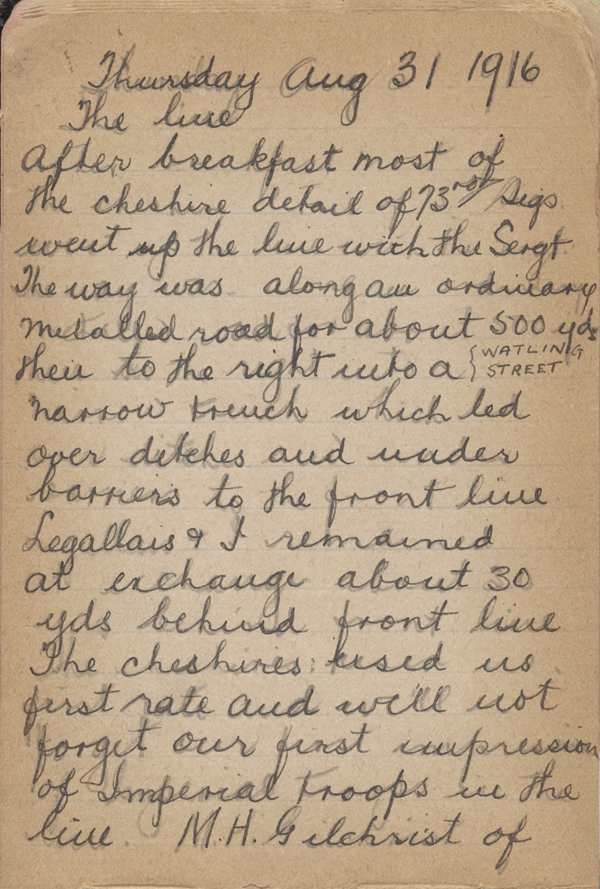 Thursday Aug 31 1916
The line
After breakfast most of
the cheshire detail of 73rd Sigs
went up the line with the Sergt
The way was along an ordinary
metalled road for about 500 yds
then to the right into a {WATLING STREET
narrow trench which led
over ditches and under
barriers to the front line
Legallais & I remained
at exchange about 30
yds behind front line
The cheshires used us
first rate and we'll not
forget our first impression
of Imperial troops in the
line. M.H. Gilchrist of